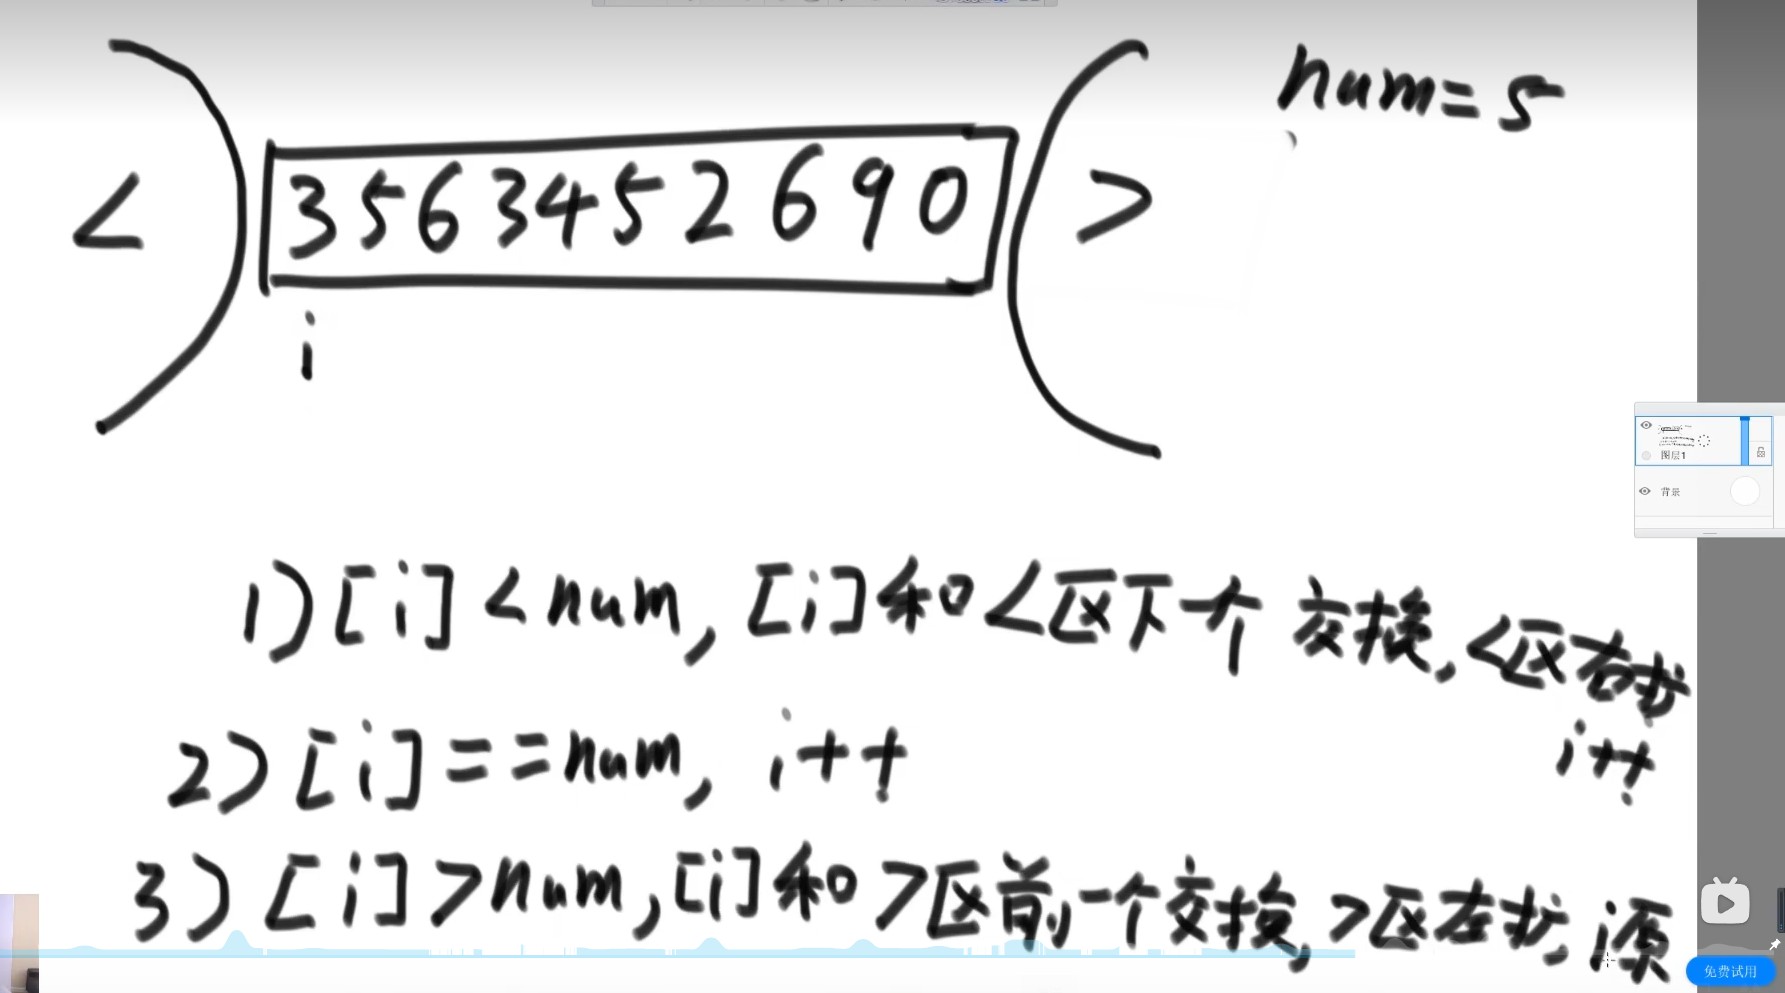 num=5
< 3 5 6 3 4 5 2 6 9 0 >
i
图层1
背景
1) [i] < num, [i]和<区下一个 交换, <区右扩
i++
2) [i] == num, i++
3) [i] > num, [i]和>区前一个交换, >区左扩, i原
免费试用